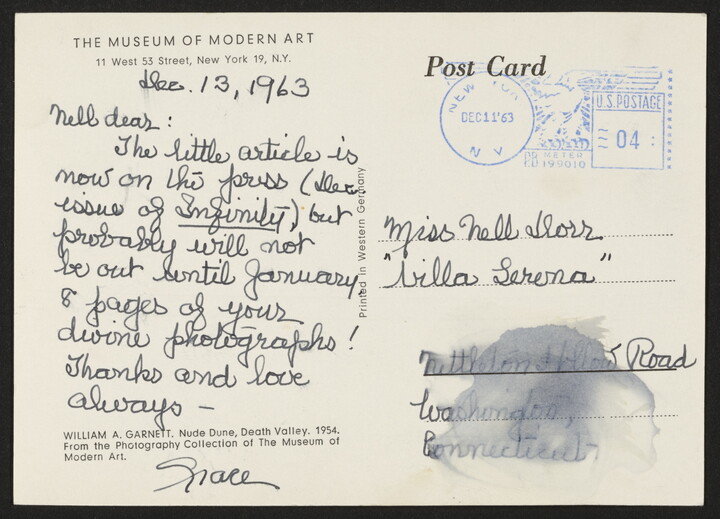 THE MUSEUM OF MODERN ART
11 West 53 Street, New York 19, N.Y.
Dec. 13, 1963
Nell dear:
The little article is
now on the press (Dec.
issue of Infinity), but
probably will not
be out until January
8 pages of your
divine photographs!
Thanks and love
always –
WILLIAM A. GARNETT. Nude Dune, Death Valley. 1954.
From the Photography Collection of The Museum of
Modern Art.
Grace
Printed in Western Germany
Post Card
NEW YORK
DEC 11 '63
N Y
U.S. POSTAGE
04
PB METER
199010
Miss Nell Dorr
"Villa Serena"
Nettleton Hollow Road
Washington,
Connecticut